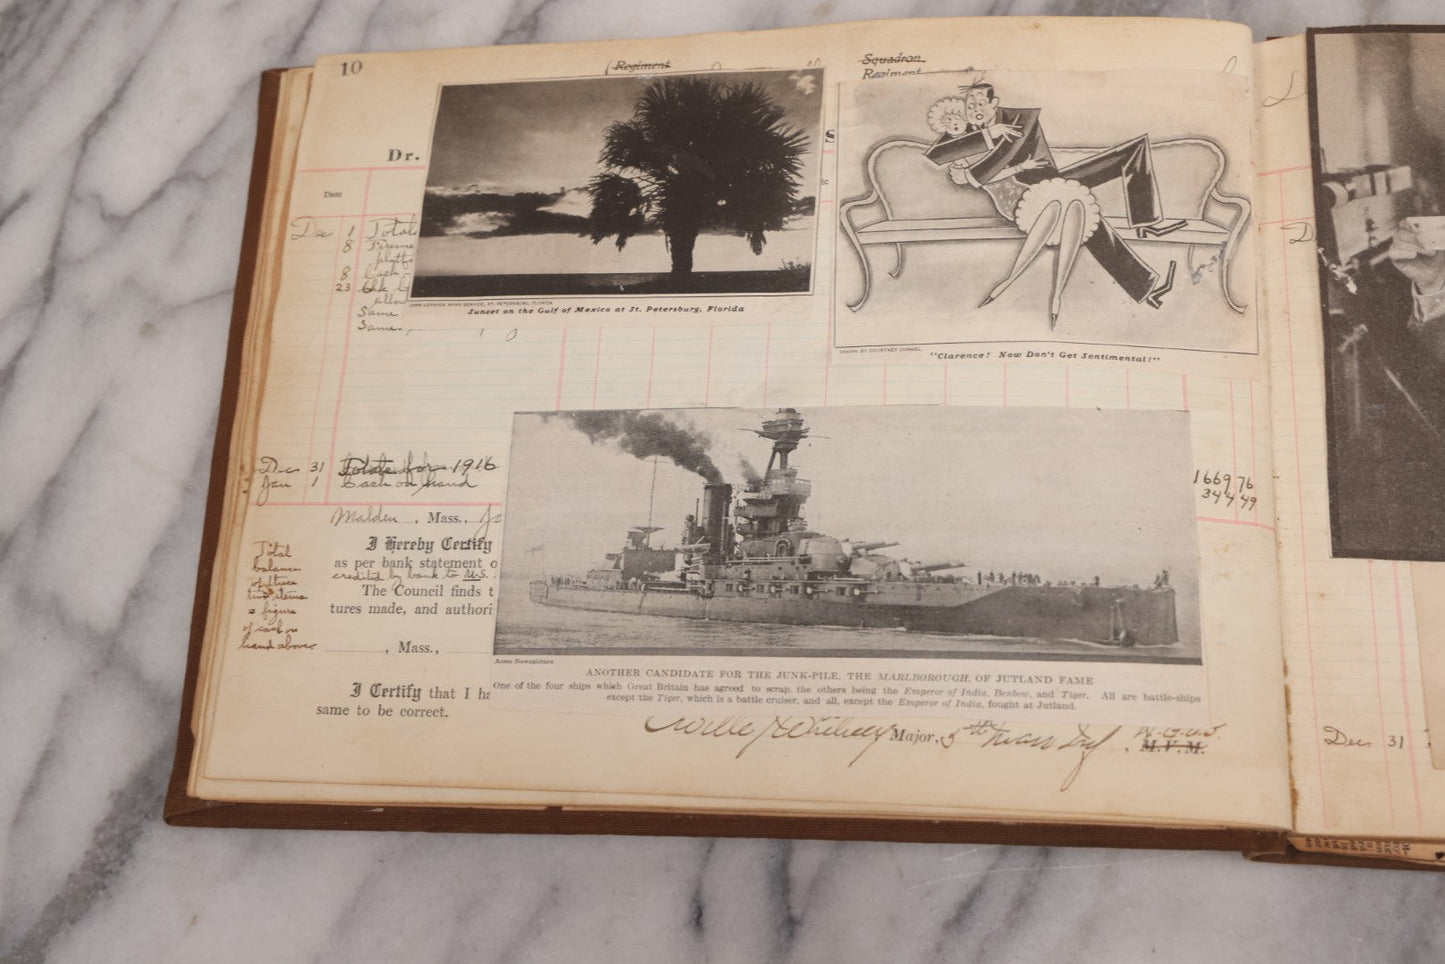 10
Regiment
Squadron
Regiment
Dr.
S
Date
Dec 1 Totals
8
8 Cash
23
Same
Same
JOHN LODWICK NEWS SERVICE, ST. PETERSBURG, FLORIDA
Sunset on the Gulf of Mexico at St. Petersburg, Florida
DRAWN BY COURTNEY DUNKEL
"Clarence! Now Don't Get Sentimental!"
Dec 31 Totals for 1916
Jan 1 Cash on hand
1669 76
344 49
Malden, Mass.,
I Hereby Certify
as per bank statement o
credited by bank to U.S.
The Council finds t
tures made, and authori
Total
balance
of these
two items
= figure
of cash on
hand above
, Mass.,
I Certify that I ha
same to be correct.
Acme Newspicture
ANOTHER CANDIDATE FOR THE JUNK-PILE, THE MARLBOROUGH, OF JUTLAND FAME
One of the four ships which Great Britain has agreed to scrap, the others being the Emperor of India, Benbow, and Tiger. All are battle-ships
except the Tiger, which is a battle cruiser, and all, except the Emperor of India, fought at Jutland.
Major, 5th Mass Inf, M.V.M.
Dec 31